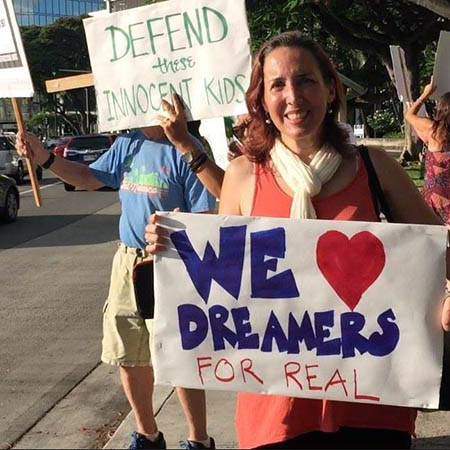 DEFEND
these
INNOCENT KIDS
WE ♥
DREAMERS
FOR REAL